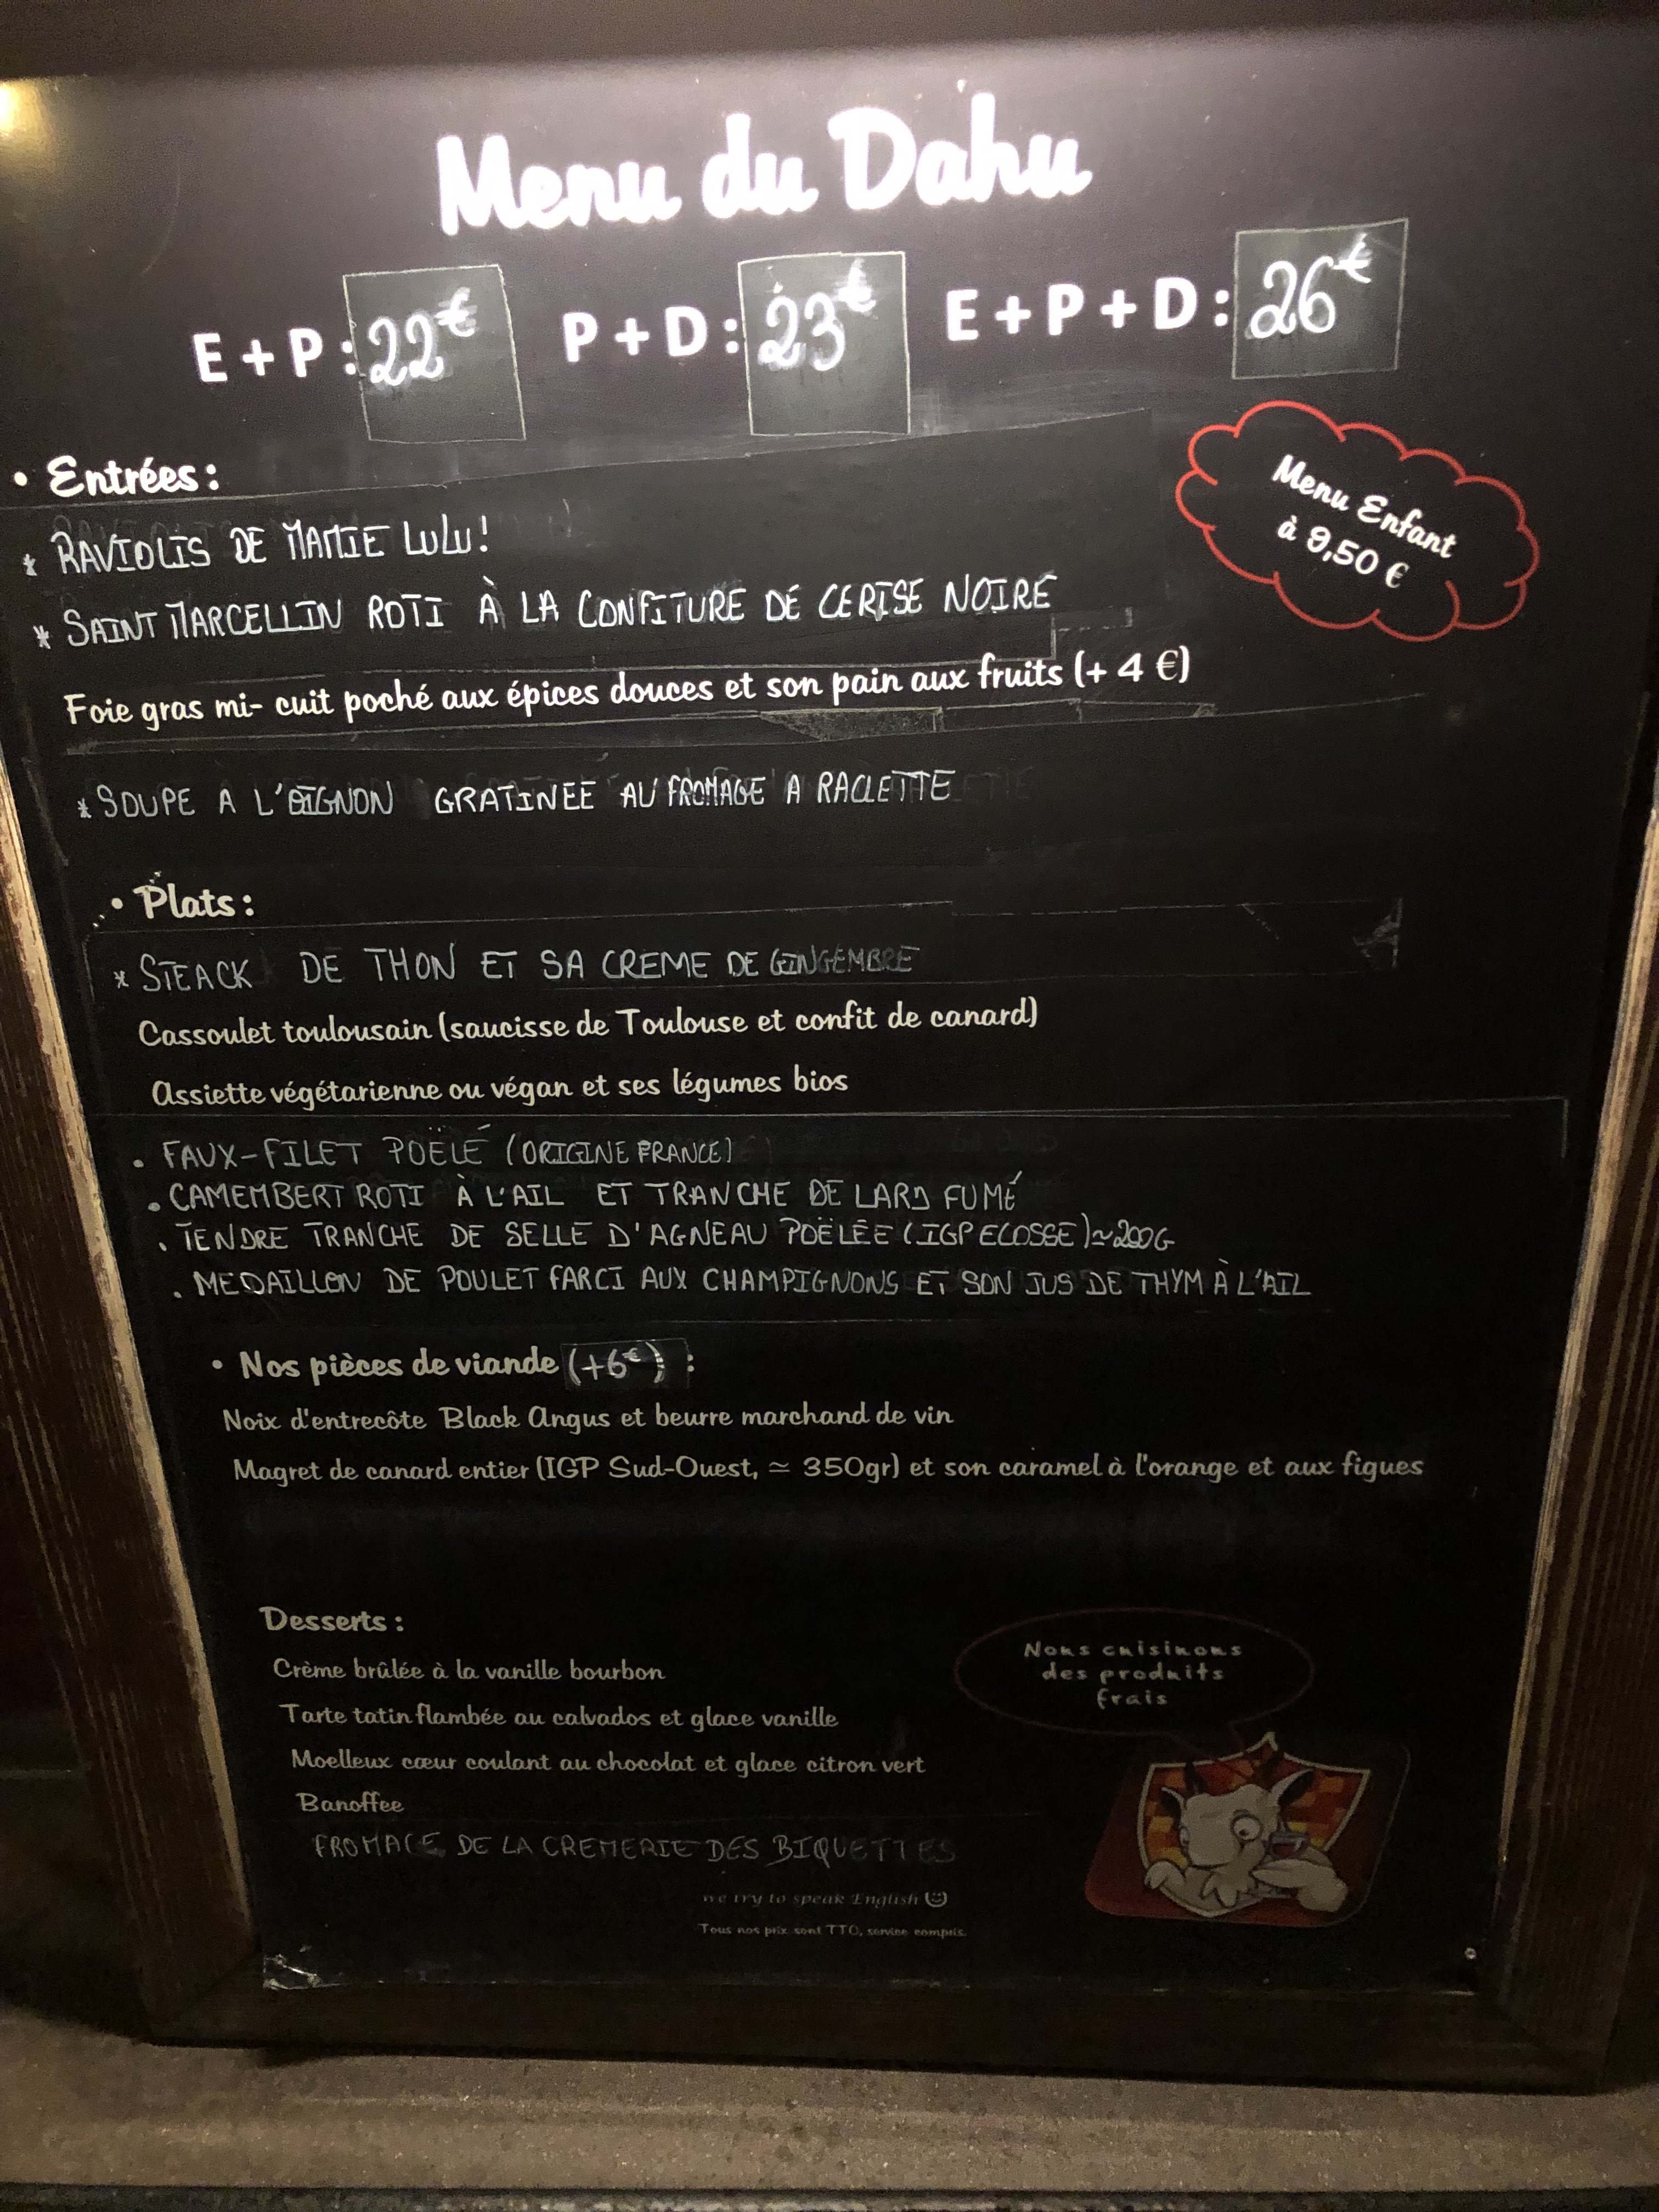 Menu du Dahu
E + P : 22€ P + D : 23€ E + P + D : 26€
• Entrées :
Menu Enfant
à 9,50 €
* RAVIOLIS DE MAMIE LULU!
* SAINT MARCELLIN ROTI À LA CONFITURE DE CERISE NOIRE
Foie gras mi- cuit poché aux épices douces et son pain aux fruits (+ 4 €)
* SOUPE A L'OIGNON GRATINEE AU FROMAGE A RACLETTE
• Plats :
* STEACK DE THON ET SA CREME DE GINGEMBRE
Cassoulet toulousain (saucisse de Toulouse et confit de canard)
Assiette végétarienne ou végan et ses légumes bios
• FAUX-FILET POËLÉ (ORIGINE FRANCE)
• CAMEMBERT ROTI À L'AIL ET TRANCHE DE LARD FUMÉ
• TENDRE TRANCHE DE SELLE D'AGNEAU POËLÉE (IGP ECOSSE) ≃ 200G
• MEDAILLON DE POULET FARCI AUX CHAMPIGNONS ET SON JUS DE THYM À L'AIL
• Nos pièces de viande (+6€) :
Noix d'entrecôte Black Angus et beurre marchand de vin
Magret de canard entier (IGP Sud-Ouest, ≃ 350gr) et son caramel à l'orange et aux figues
Desserts :
Crème brûlée à la vanille bourbon
Tarte tatin flambée au calvados et glace vanille
Moelleux cœur coulant au chocolat et glace citron vert
Banoffee
FROMAGE DE LA CREMERIE DES BIQUETTES
Nous cuisinons
des produits
frais
we try to speak English ☺
Tous nos prix sont TTC, service compris.